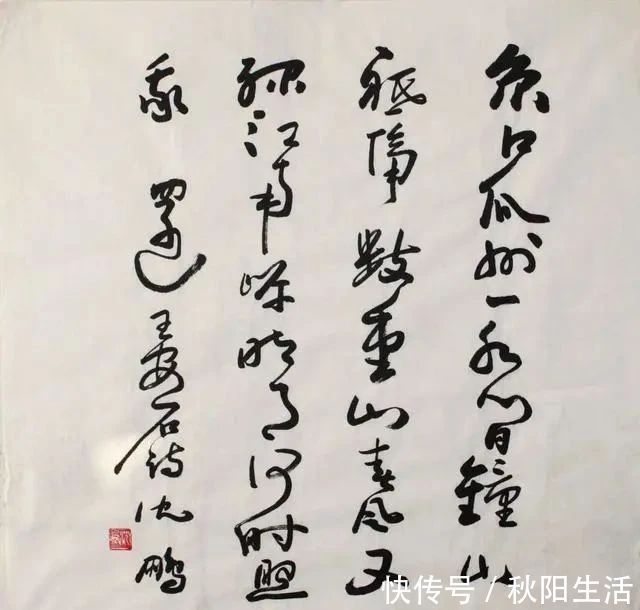 京口瓜州一水间鐘山
祗隔數重山春风又
绿江南岸明月何时照
我還 王安石诗沈鹏
快传号 / 秋阳生活